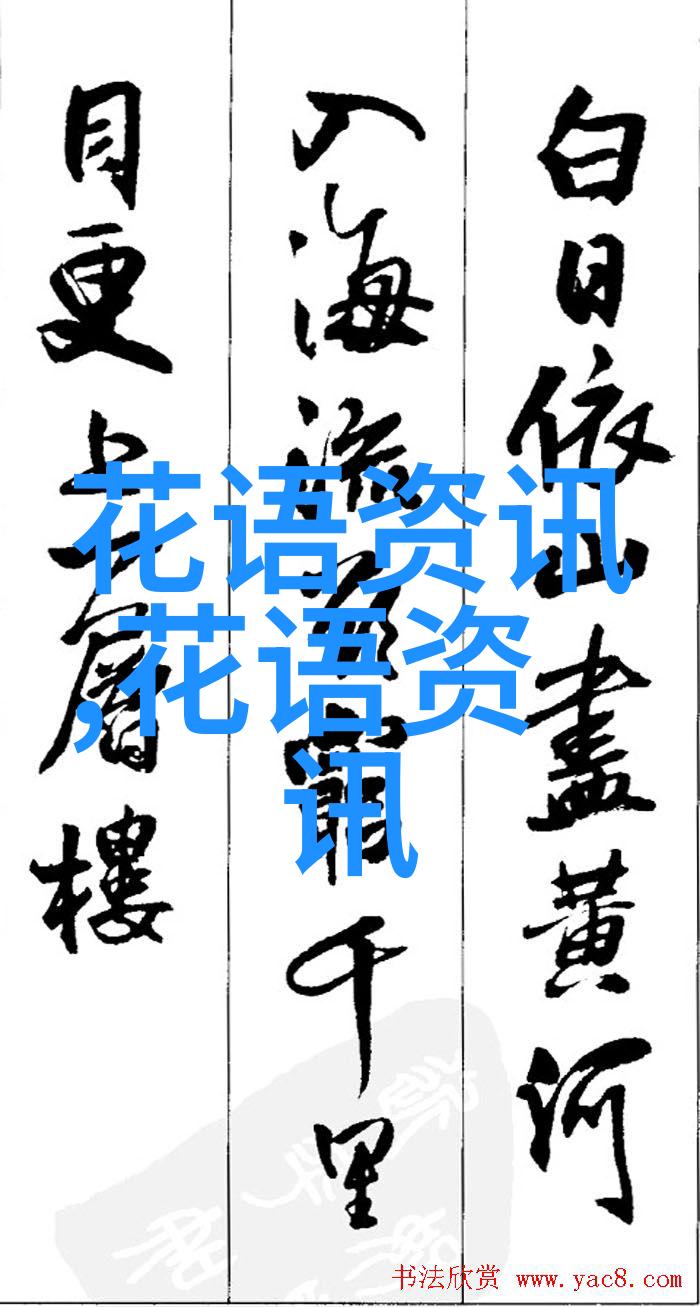 白日依山盡黄河
入海流欲窮千里
目更上一層樓
花语资讯
,花语资
讯
书法欣赏 www.yac8.com